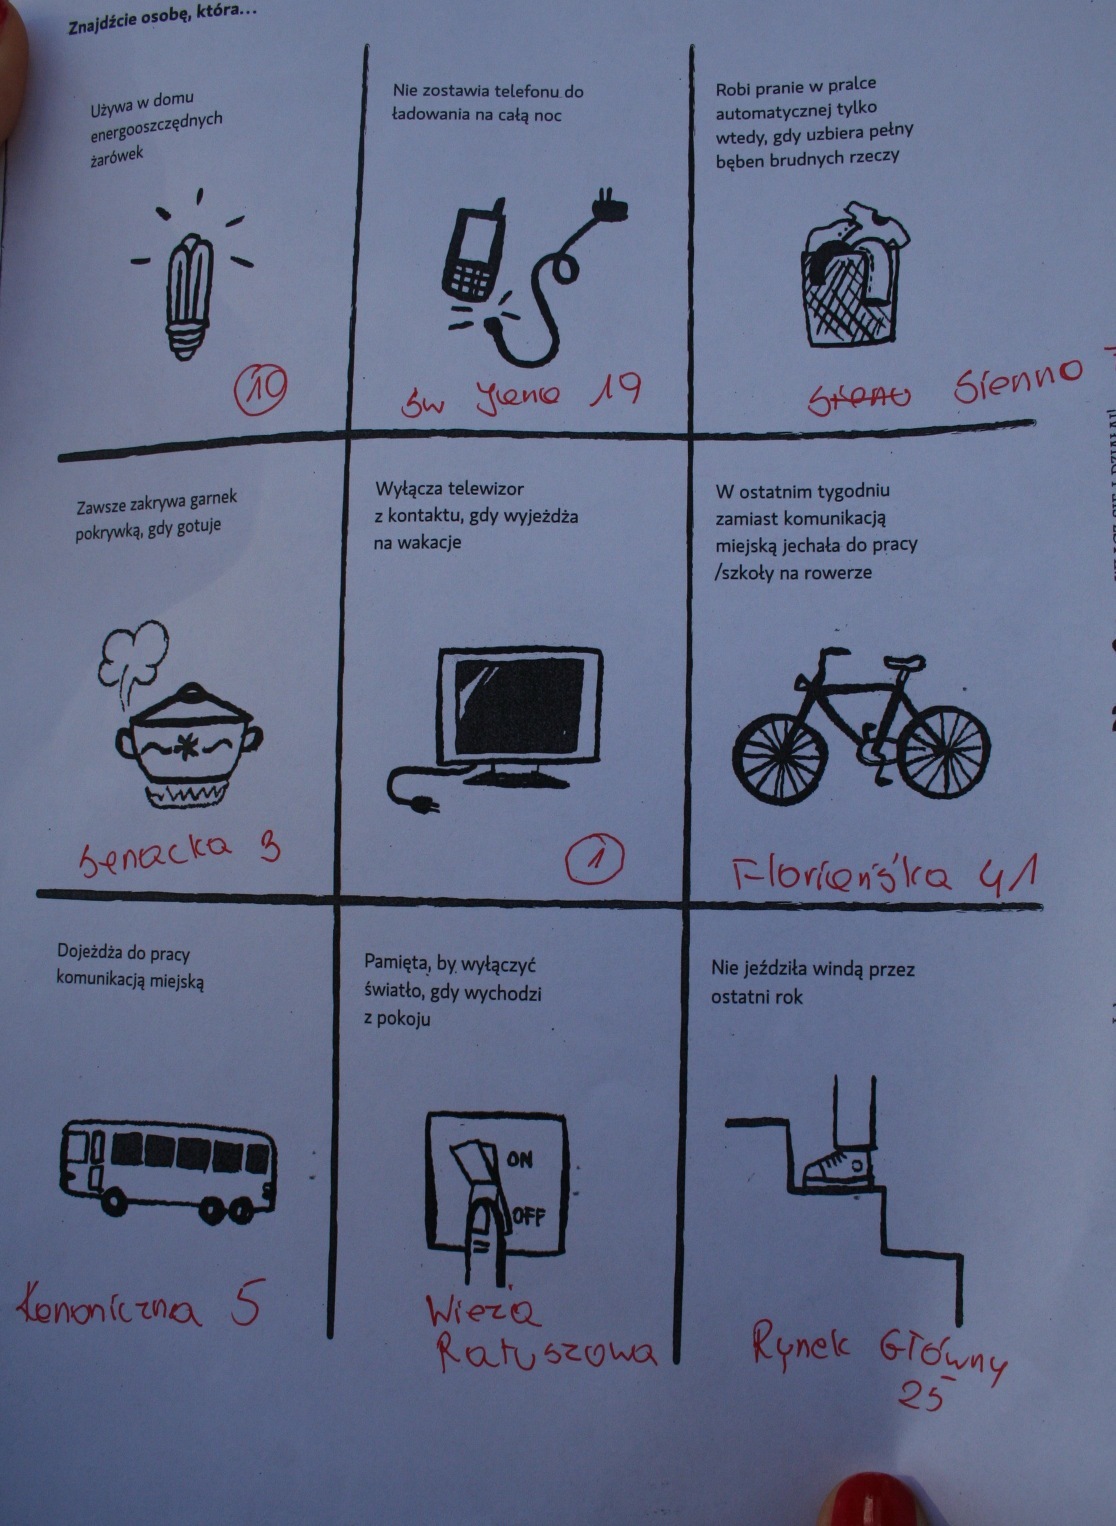 Znajdźcie osobę, która...
Używa w domu
energooszczędnych
żarówek
10
Nie zostawia telefonu do
ładowania na całą noc
św Jana 19
Robi pranie w pralce
automatycznej tylko
wtedy, gdy uzbiera pełny
bęben brudnych rzeczy
Sienna
Zawsze zakrywa garnek
pokrywką, gdy gotuje
Senacka 3
Wyłącza telewizor
z kontaktu, gdy wyjeżdża
na wakacje
1
W ostatnim tygodniu
zamiast komunikacją
miejską jechała do pracy
/szkoły na rowerze
Floriańska 41
Dojeżdża do pracy
komunikacją miejską
Kanoniczna 5
Pamięta, by wyłączyć
światło, gdy wychodzi
z pokoju
ON
OFF
Wieża
Ratuszowa
Nie jeździła windą przez
ostatni rok
Rynek Główny
25